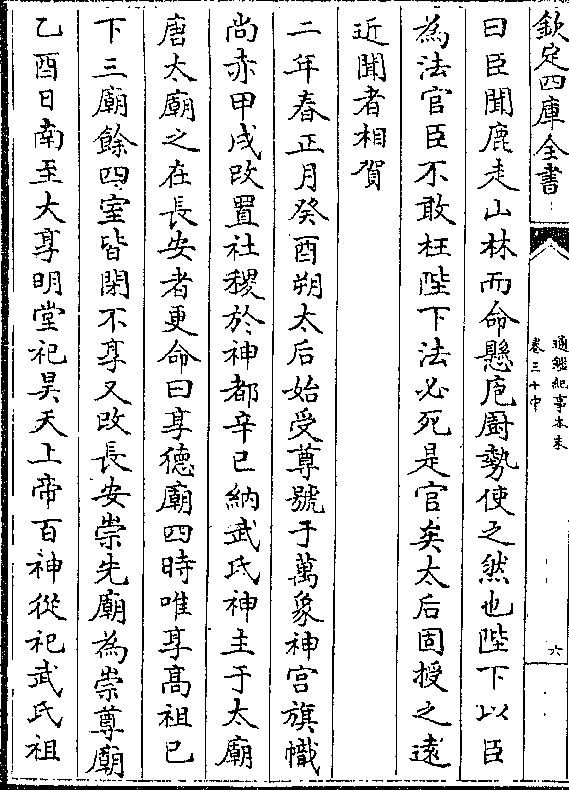 欽定四庫全書
通鑑紀事本末
卷三十中
六
曰臣聞鹿走山林而命懸庖厨勢使之然也陛下以臣
為法官臣不敢枉陛下法必死是官矣太后固授之遠
近聞者相賀
二年春正月癸酉朔太后始受尊號于萬象神宫旗幟
尚赤甲戌改置社稷於神都辛巳納武氏神主于太廟
唐太廟之在長安者更命曰享德廟四時唯享髙祖已
下三廟餘四室皆閉不享又改長安崇先廟為崇尊廟
乙酉日南至大享明堂祀昊天上帝百神從祀武氏祖